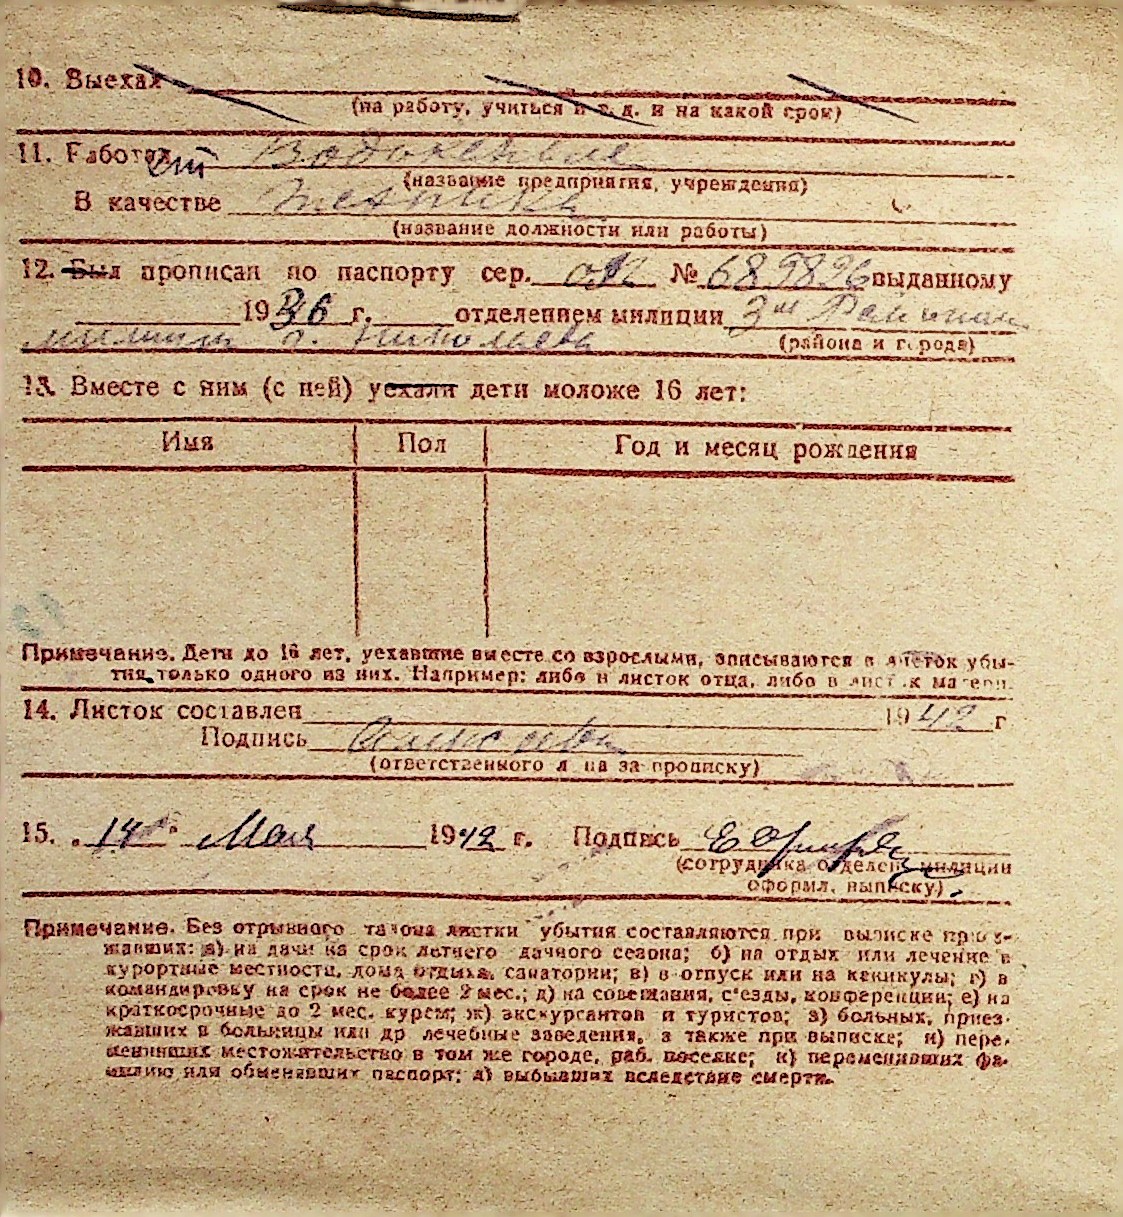 10. Выехал
(на работу, учиться и т. д. и на какой срок)
11. Работает Водоканале
(название предприятия, учреждения)
В качестве техника
(название должности или работы)
12. Был прописан по паспорту сер. № 689896 выданному
1936 г. отделением милиции 3м Районном
милиции г. Николаева (района и города)
13. Вместе с ним (с ней) уехали дети моложе 16 лет:
Имя Пол Год и месяц рождения
Примечание. Дети до 16 лет, уехавшие вместе со взрослыми, вписываются в листок убы-
тия только одного из них. Например: либо в листок отца, либо в листок матери.
14. Листок составлен 1942 г
Подпись
(ответственного л на за прописку)
15. 14 Мая 1942 г. Подпись
(сотрудника отделен. милиции
оформл. выписку).
Примечание. Без отрывного талона листки убытия составляются при выписке приез-
жавших: а) на дачи на срок летнего дачного сезона; б) на отдых или лечение в
курортные местности, дома отдыха, санатории; в) в отпуск или на каникулы; г) в
командировку на срок не более 2 мес.; д) на совещания, с'езды, конференции; е) на
краткосрочные до 2 мес. курсы; ж) экскурсантов и туристов; з) больных, приез-
жавших в больницы или др лечебные заведения, а также при выписке; и) пере-
менивших местожительство в том же городе, раб. поселке; к) переменивших фа-
милию или обменявших паспорт; л) выбывших вследствие смерти.